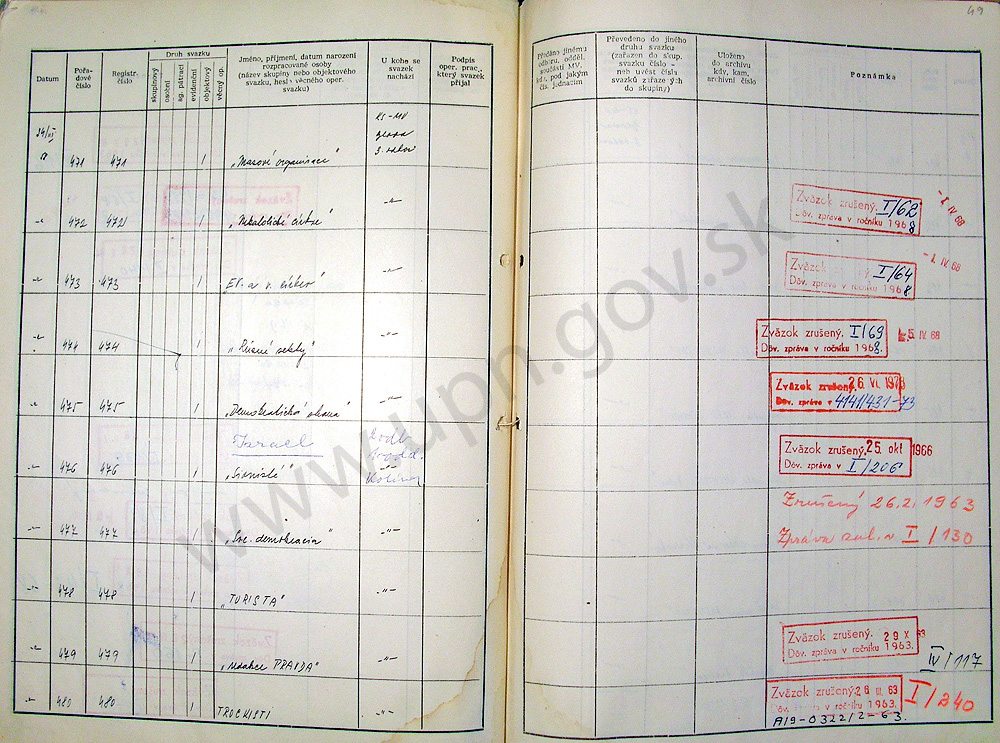 49
Datum
Pořadové číslo
Registr. číslo
Druh svazku
skupinový
osobní
ag. pátrací
evidenční
objektový
věcný op.
Jméno, příjmení, datum narození
rozpracované osoby
(název skupiny nebo objektového
svazku, heslo věcného oper.
svazku)
U koho se
svazek
nachází
Podpis
oper. prac.,
který svazek
přijal
Předáno jinému
odboru, odděl.
součásti MV,
kdy, pod jakým
čís. jednacím
Převedeno do jiného
druhu svazku
(zařazen do skup.
svazku číslo -
neb uvést čísla
svazků zařaze ých
do skupiny)
Uloženo
do archivu
kdy, kam,
archivní číslo
Poznámka
24/VI
471 471 1 „Masové organisace"
KS-MV
3. odbor
-"- 472 472 1 -"-
Zväzok zrušený. I/62
Dôv. zpráva v ročníku 1968
-1. IV. 68
-"- 473 473 1 -"-
Zväzok zrušený. I/64
Dôv. zpráva v ročníku 1968
-1. IV. 68
-"- 474 474 1 „Různé sekty" -"-
Zväzok zrušený. I/69
Dôv. zpráva v ročníku 1968.
5. IV 68
-"- 475 475 1 -"-
Zväzok zrušený. 26. VI. 1973
Dôv. zpráva v 4141/431-73
Izrael
-"- 476 476 1 „Sionisté" -"-
Zväzok zrušený. 25. okt 1966
Dôv. zpráva v I/206
-"- 477 477 1 „Soc. demokracia" -"-
Zrušený 26.2.1963
Zpráva zul. v I/130
-"- 478 478 1 „TURISTA" -"-
-"- 479 479 1 „redakce PRAVDA" -"-
Zväzok zrušený. 29 X 63
Dôv. zpráva v ročníku 1963.
IV/117
-"- 480 480 1 TROCKISTI -"-
Zväzok zrušený. 26 III. 63
Dôv. zpráva v ročníku 1963.
I/240
A19-0322/2-63.
www.upn.gov.sk